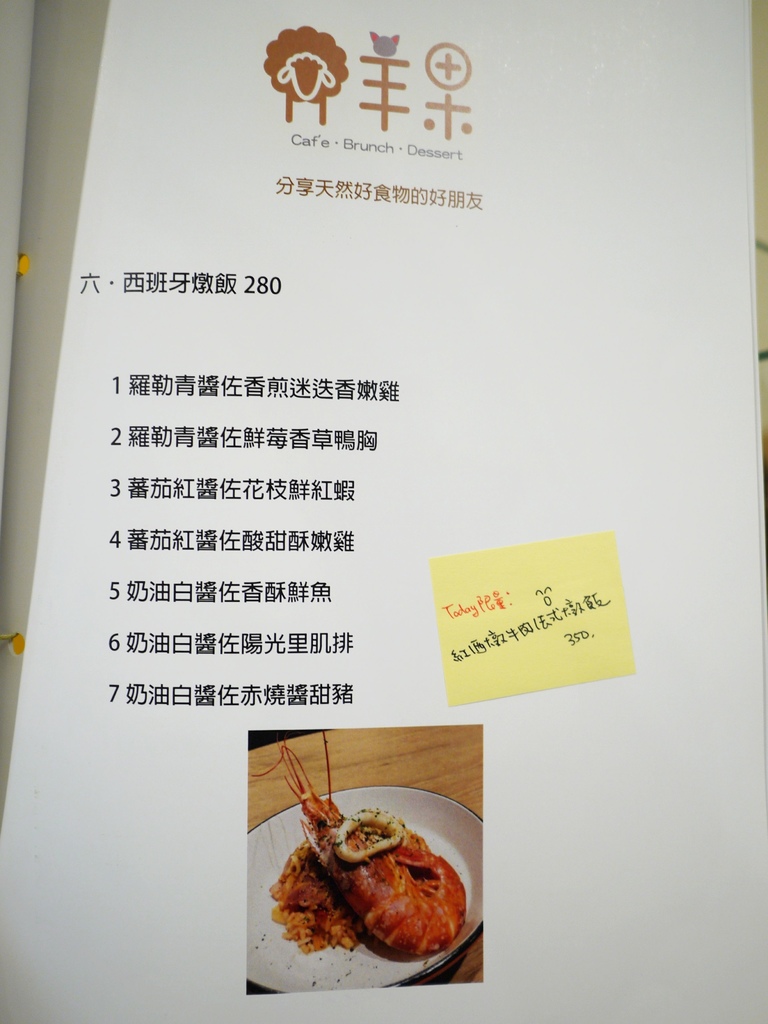 羊果
Caf'e · Brunch · Dessert
分享天然好食物的好朋友
六 · 西班牙燉飯 280
1 羅勒青醬佐香煎迷迭香嫩雞
2 羅勒青醬佐鮮莓香草鴨胸
3 蕃茄紅醬佐花枝鮮紅蝦
4 蕃茄紅醬佐酸甜酥嫩雞
5 奶油白醬佐香酥鮮魚
6 奶油白醬佐陽光里肌排
7 奶油白醬佐赤燒醬甜豬
Today限量:
紅酒燉牛肉法式燉飯
350.